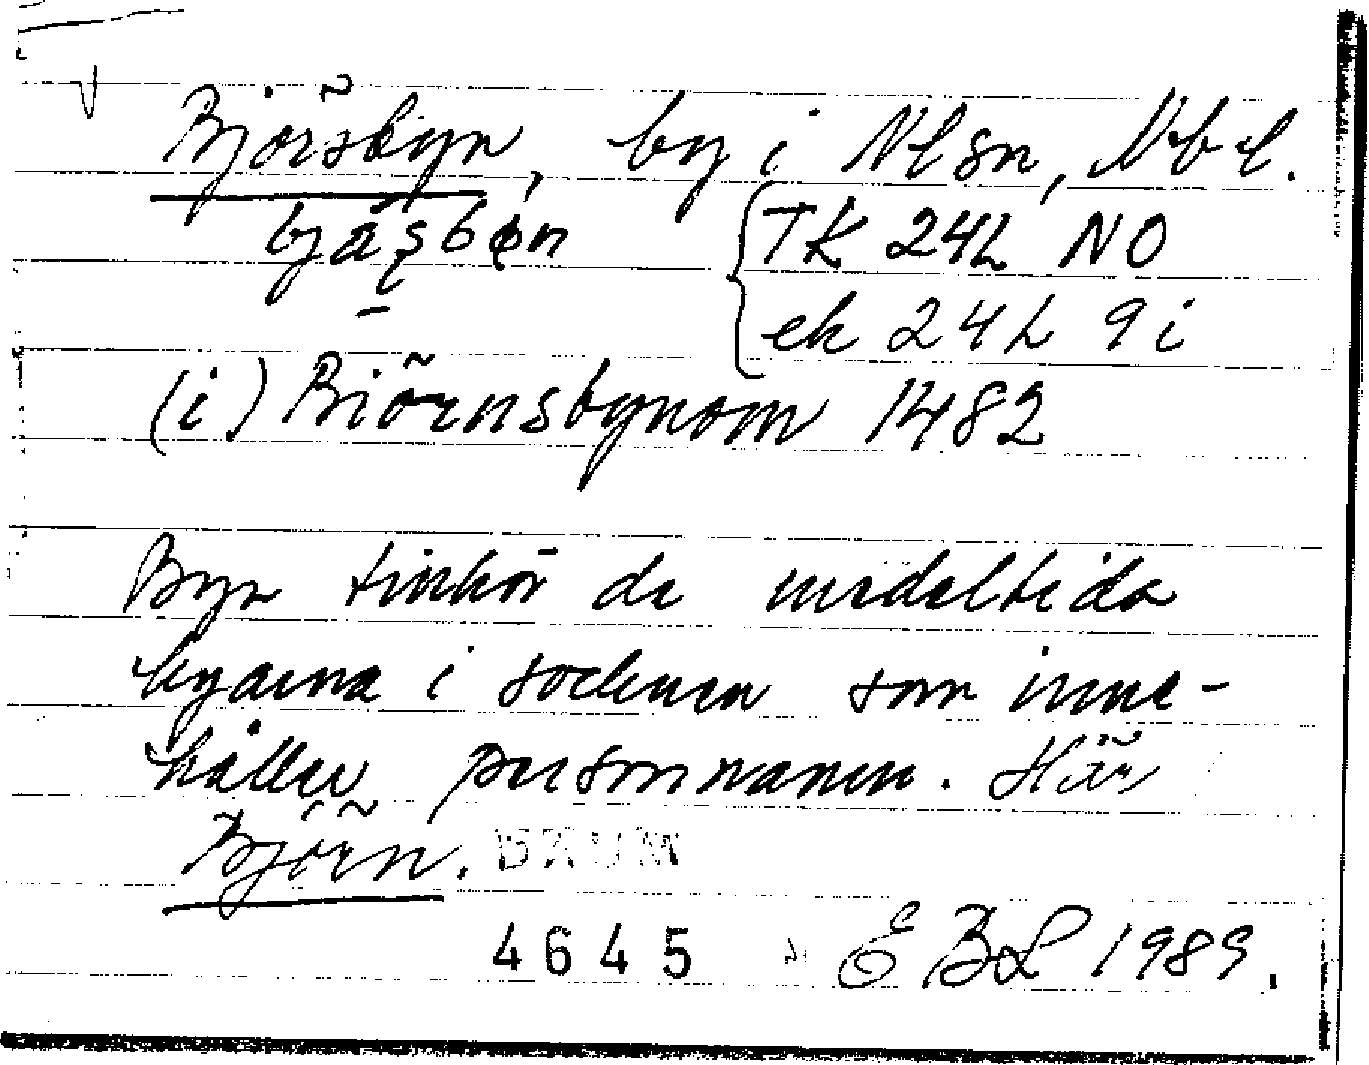 Björsbyn, by i Nlsn, Nbl.
TK 24L NO
ek 24L 9i
(i) Biörnsbynom 1482
Byn tillhör de medeltida
byarna i socknen som inne-
håller personnamn. Här
Björn. DAUM
4645 EBL 1989.